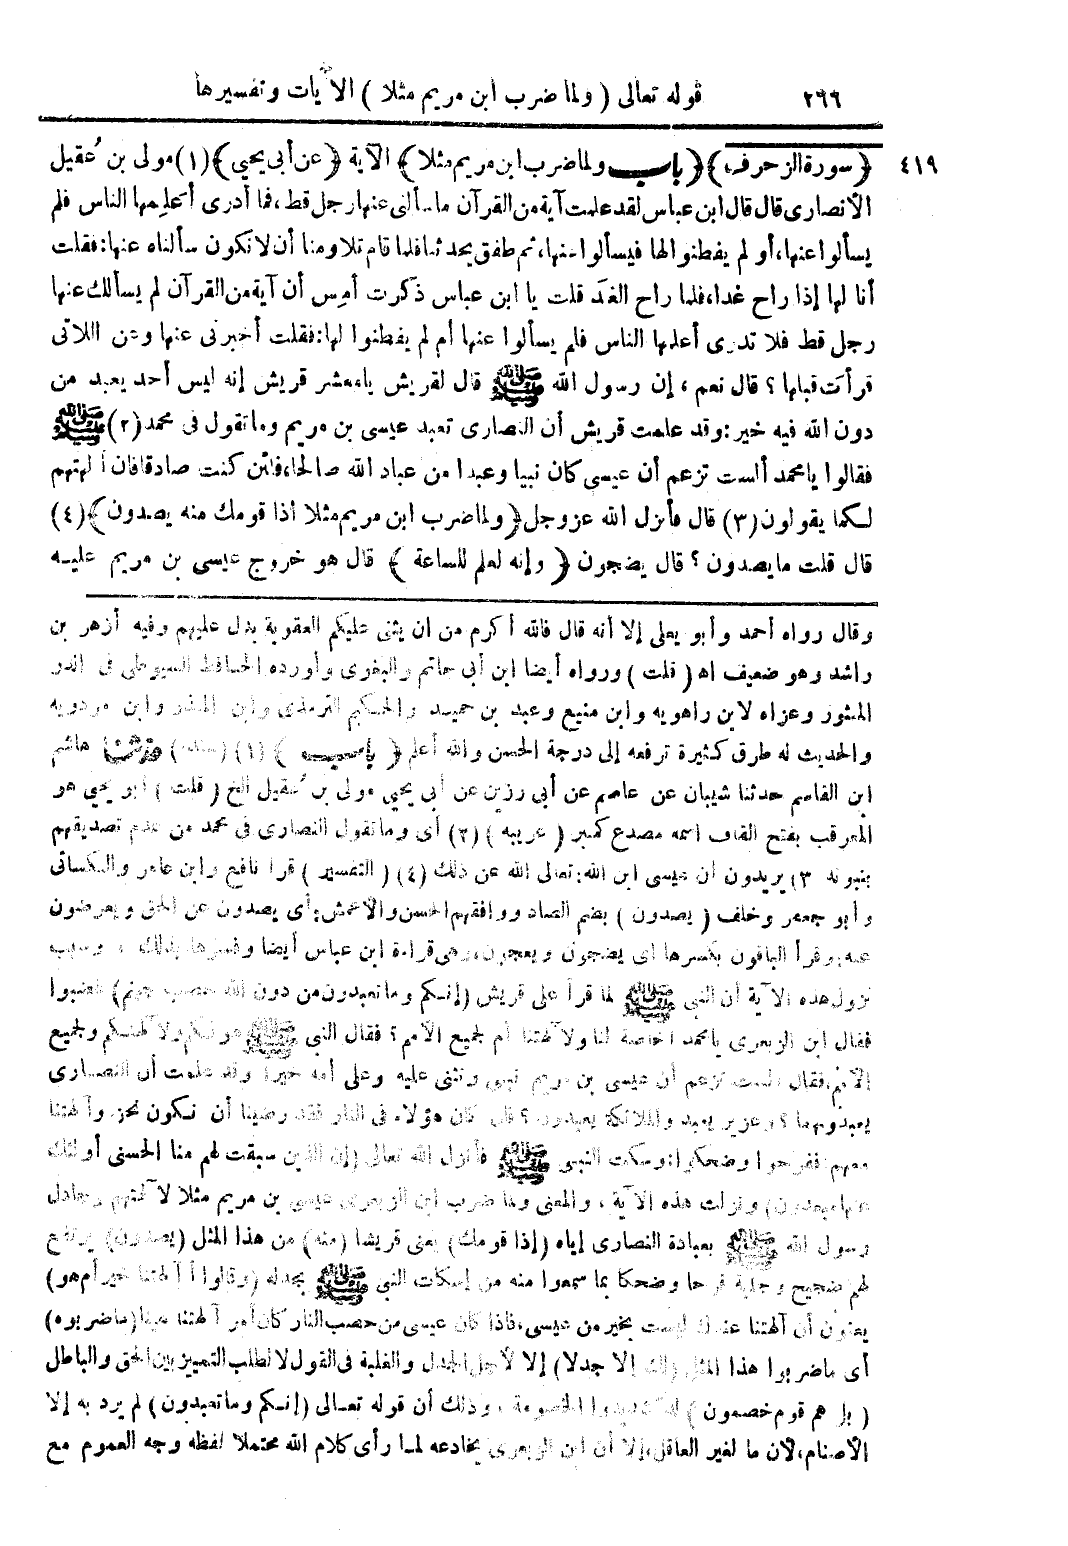 ٢٦٦ قوله تعالى ( ولما ضرب ابن مريم مثلا ) الآيات وتفسيرها
٤١٩ ﴿ سورة الزخرف ﴾ ﴿ باب ولما ضرب ابن مريم مثلا ﴾ الآية ﴿ عن أبى يحيى ﴾ (١) مولى بن عُقيل
الأنصارى قال قال ابن عباس لقد علمت آية من القرآن ما سألنى عنها رجل قط، فما أدرى أعلمها الناس فلم
يسألوا عنها، أو لم يفطنوا لها فيسألوا عنها، ثم طفق يحدثنا فلما قام تلاومنا أن لا نكون سألناه عنها: فقلت
أنا لها إذا راح غدا، فلما راح الغد قلت يا ابن عباس ذكرت أمس أن آية من القرآن لم يسألك عنها
رجل قط فلا تدرى أعلمها الناس فلم يسألوا عنها أم لم يفطنوا لها: فقلت أخبرنى عنها وعن اللاتى
قرأت قبلها ؟ قال نعم ، إن رسول الله ﷺ قال لقريش يا معشر قريش إنه ليس أحد يعبد من
دون الله فيه خير: وقد علمت قريش أن النصارى تعبد عيسى بن مريم وما تقول فى محمد (٢) ﷺ
فقالوا يا محمد ألست تزعم أن عيسى كان نبيا وعبدا من عباد الله صالحا، فلئن كنت صادقا فان آلهتهم
لكما يقولون (٣) قال فأنزل الله عز وجل ﴿ ولما ضرب ابن مريم مثلا إذا قومك منه يصدون ﴾ (٤)
قال قلت ما يصدون ؟ قال يضجون ﴿ وإنه لعلم للساعة ﴾ قال هو خروج عيسى بن مريم عليه
وقال رواه أحمد وأبو يعلى إلا أنه قال فالله أكرم من ان يثنى عليكم العقوبة بدل عليهم وفيه أزهر بن
راشد وهو ضعيف اه ( قلت ) ورواه أيضا ابن أبى حاتم والبغوى وأورده الحافظ السيوطى فى الدر
المنثور وعزاه لابن راهويه وابن منيع وعبد بن حميد والحكيم الترمذى وابن المنذر وابن مردويه
والحديث له طرق كثيرة ترفعه إلى درجة الحسن والله أعلم ﴿ باب ﴾ (١) (سنده) حدثنا هاشم
ابن القاسم حدثنا شيبان عن عاصم عن أبى رزين عن أبى يحيى مولى بن عُقيل الخ ( قلت ) أبو يحيى هو
المعرقب بفتح القاف اسمه مصدع كمنبر ( غريبه ) (٢) أى وما تقول النصارى فى محمد من عدم تصديقهم
بنبوته (٣) يريدون أن عيسى ابن الله: تعالى الله عن ذلك (٤) ( التفسير ) قرأ نافع وابن عامر والكسائى
وأبو جعفر وخلف ( يصدون ) بضم الصاد ووافقهم الحسن والأعمش: أى يصدون عن الحق ويعرضون
عنه: وقرأ الباقون بكسرها اى يضجون ويعجون، وهى قراءة ابن عباس أيضا وفسرها بذلك ، وسبب
نزول هذه الآية أن النبى ﷺ لما قرأ على قريش (إنكم وما تعبدون من دون الله حصب جهنم) غضبوا
فقال ابن الزبعرى يا محمد أخاصة لنا ولآلهتنا أم لجميع الأمم؟ فقال النبى ﷺ هو لكم ولآلهتكم ولجميع
الأمم، فقال ألست تزعم أن عيسى بن مريم نبى وتثنى عليه وعلى أمه خيرا وقد علمت أن النصارى
يعبدونهما؟ وعزير يعبد والملائكة يعبدون؟ فان كان هؤلاء فى النار فقد رضينا أن نكون نحن وآلهتنا
معهم: ففرحوا وضحكوا: وسكت النبى ﷺ فأنزل الله تعالى (إن الذين سبقت لهم منا الحسنى أولئك
عنها مبعدون) ونزلت هذه الآية ، والمعنى ولما ضرب ابن الزبعرى عيسى بن مريم مثلا لآلهتهم وجادل
رسول الله ﷺ بعبادة النصارى إياه (إذا قومك) يعنى قريشا (منه) من هذا المثل (يصدون) يرتفع
لهم ضجيج وجلبة فرحا وضحكا بما سمعوا منه من إسكات النبى ﷺ بجدله (وقالوا أآلهتنا خير أم هو)
يعنون أن آلهتنا عندك ليست بخير من عيسى، فاذا كان عيسى من حصب النار كان أمر آلهتنا هينا (ما ضربوه)
أى ما ضربوا هذا المثل (لك إلا جدلا) إلا لأجل الجدل والغلبة فى القول لا لطلب التمييز بين الحق والباطل
( بل هم قوم خصمون ) الخصومة ، وذلك أن قوله تعالى (إنكم وما تعبدون) لم يرد به إلا
الأصنام، لأن ما لغير العاقل، إلا أن ابن الزبعرى بخداعه لما رأى كلام الله محتملا لفظه وجه العموم مع